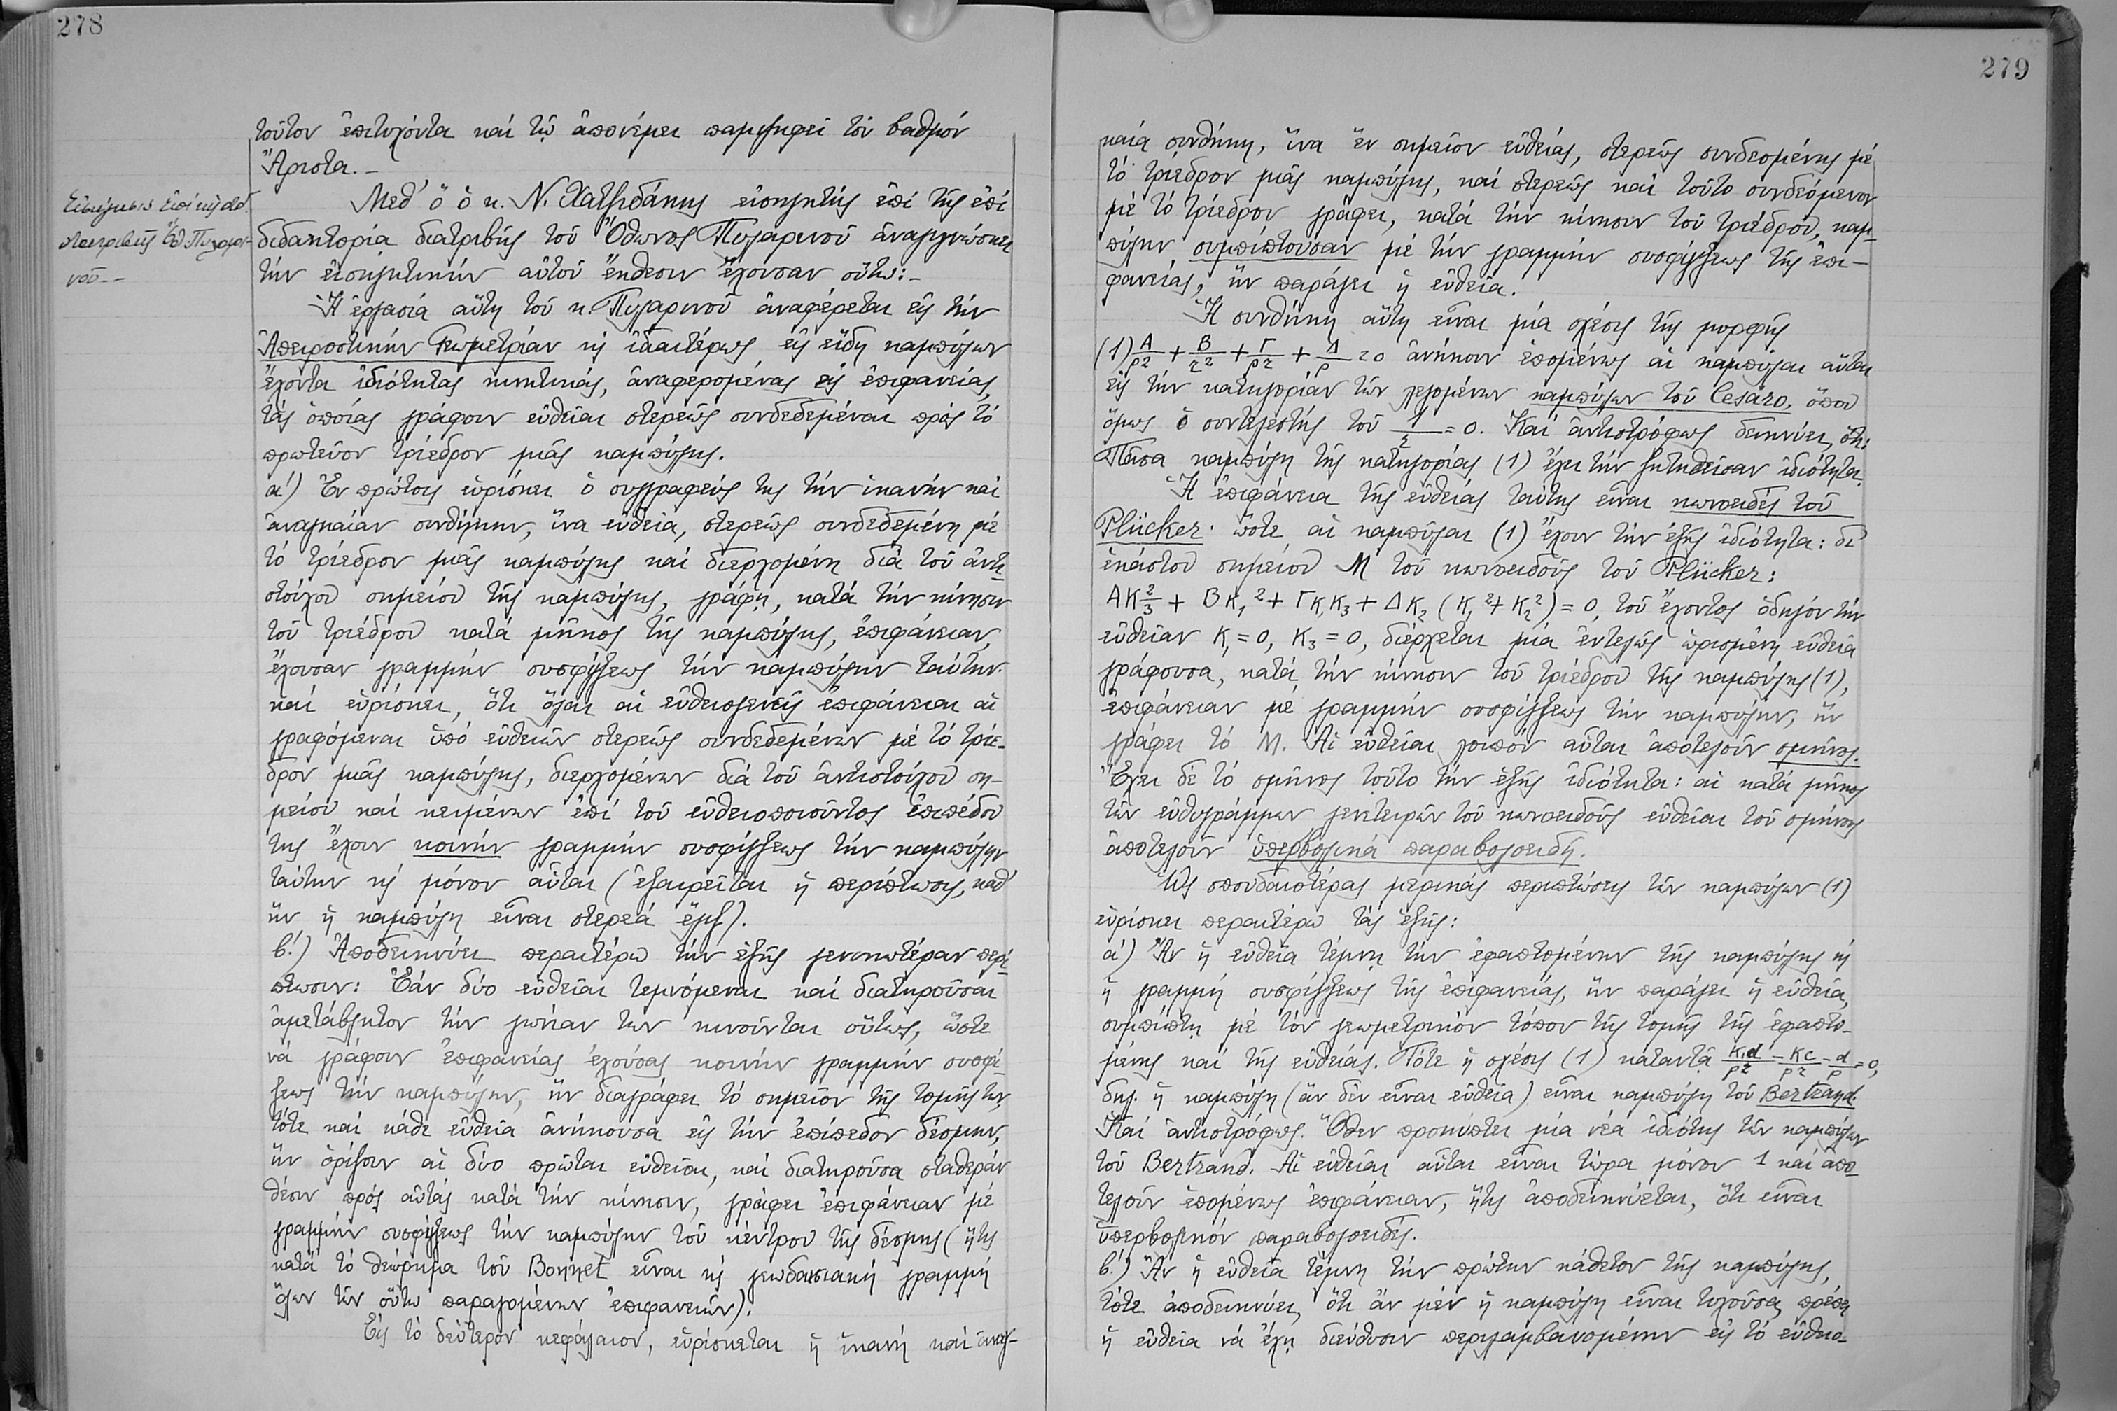 278
τοῦτον ἐπιτυχόντα καί τῷ ἀπονέμει παμψηφεί τόν βαθμόν
Ἄριστα.-
Εἰσήγησις ἐπί τῆς διδ.
διατριβῆς Ὄθ. Πυλαρι-
νοῦ.-
Μεθ' ὅ ὁ κ. Ν. Χατζιδάκης εἰσηγητής ἐπί τῆς ἐπί
διδακτορίᾳ διατριβῆς τοῦ Ὄθωνος Πυλαρινοῦ ἀναγιγνώσκει
τήν εἰσηγητικήν αὐτοῦ ἔκθεσιν ἔχουσαν οὕτω:-
Ἡ ἐργασία αὕτη τοῦ κ. Πυλαρινοῦ ἀναφέρεται εἰς τήν
Ἀπειροστικήν Γεωμετρίαν κ' ἰδιαιτέρως εἰς εἴδη καμπύλων
ἔχοντα ἰδιότητας κινητικάς, ἀναφερομένας εἰς ἐπιφανείας,
τάς ὁποίας γράφουν εὐθεῖαι στερεῶς συνδεδεμέναι πρός τό
πρωτεῦον τρίεδρον μιᾶς καμπύλης.
α') Ἐν πρώτοις εὑρίσκει ὁ συγγραφεύς της τήν ἱκανήν καί
ἀναγκαίαν συνθήκην, ἵνα εὐθεῖα, στερεῶς συνδεδεμένη μέ
τό τρίεδρον μιᾶς καμπύλης καί διερχομένη διά τοῦ ἀντι-
στοίχου σημείου τῆς καμπύλης, γράφῃ, κατά τήν κίνησιν
τοῦ τριέδρου κατά μῆκος τῆς καμπύλης, ἐπιφάνειαν,
ἔχουσαν γραμμήν συσφίγξεως τήν καμπύλην ταύτην·
καί εὑρίσκει, ὅτι ὅλαι αἱ εὐθειογενεῖς ἐπιφάνειαι αἱ
γραφόμεναι ὑπό εὐθειῶν στερεῶς συνδεδεμένων μέ τό τρίε-
δρον μιᾶς καμπύλης, διερχομένων διά τοῦ ἀντιστοίχου ση-
μείου καί κειμένων ἐπί τοῦ εὐθειοποιοῦντος ἐπιπέδου
της ἔχουν κοινήν γραμμήν συσφίγξεως τήν καμπύλην
ταύτην κ' μόνον αὗται (ἐξαιρεῖται ἡ περίπτωσις, καθ'
ἥν ἡ καμπύλη εἶναι στερεά ἕλιξ).
β') Ἀποδεικνύει περαιτέρω τήν ἑξῆς γενικωτέραν περί-
πτωσιν: Ἐάν δύο εὐθεῖαι τεμνόμεναι καί διατηροῦσαι
ἀμετάβλητον τήν γωνίαν των κινοῦνται οὕτως, ὥστε
νά γράφουν ἐπιφανείας ἐχούσας κοινήν γραμμήν συσφί-
ξεως τήν καμπύλην, ἥν διαγράφει τό σημεῖον τῆς τομῆς των,
τότε καί κάθε εὐθεῖα ἀνήκουσα εἰς τήν ἐπίπεδον δέσμην,
ἥν ὁρίζουν αἱ δύο πρῶται εὐθεῖαι, καί διατηροῦσα σταθεράν
θέσιν πρός αὐτάς κατά τήν κίνησιν, γράφει ἐπιφάνειαν μέ
γραμμήν συσφίξεως τήν καμπύλην τοῦ κέντρου τῆς δέσμης (ἥτις
κατά τό θεώρημα τοῦ Bonnet εἶναι κ' γεωδαισιακή γραμμή
ὅλων τῶν οὕτω παραγομένων ἐπιφανειῶν).
Εἰς τό δεύτερον κεφάλαιον, εὑρίσκεται ἡ ἱκανή καί ἀναγ-
279
καία συνθήκη, ἵνα ἕν σημεῖον εὐθείας, στερεῶς συνδεομένης μέ
τό τρίεδρον μιᾶς καμπύλης, καί στερεῶς καί τοῦτο συνδεόμενον
μέ τό τρίεδρον γράφει, κατά τήν κίνησιν τοῦ τριέδρου, καμ-
πύλην συμπίπτουσαν μέ τήν γραμμήν συσφίγξεως τῆς ἐπι-
φανείας, ἥν παράγει ἡ εὐθεῖα.
Ἡ συνθήκη αὕτη εἶναι μία σχέσις τῆς μορφῆς
(1) Α/ρ² + Β/τ² + Γ/ρ² + Δ/ρ = 0 ἀνήκουν ἑπομένως αἱ καμπύλαι αὗται
εἰς τήν κατηγορίαν τῶν λεγομένων καμπύλων τοῦ Cesàro, ὅπου
ὅμως ὁ συντελεστής τοῦ 1/τ = 0. Καί ἀντιστρόφως δεικνύει, ὅτι:
Πᾶσα καμπύλη τῆς κατηγορίας (1) ἔχει τήν ζητηθεῖσαν ἰδιότητα.
Ἡ ἐπιφάνεια τῆς εὐθείας ταύτης εἶναι κωνοειδές τοῦ
Plücker· ὥστε αἱ καμπύλαι (1) ἔχουν τήν ἑξῆς ἰδιότητα: δι'
ἑκάστου σημείου Μ τοῦ κωνοειδοῦς τοῦ Plücker:
ΑΚ₃² + ΒΚ₁² + ΓΚ₁Κ₃ + ΔΚ₂ (Κ₁² + Κ₂²) = 0, τοῦ ἔχοντος ὁδηγόν τήν
εὐθεῖαν Κ₁ = 0, Κ₃ = 0, διέρχεται μία ἐντελῶς ὡρισμένη εὐθεῖα
γράφουσα, κατά τήν κίνησιν τοῦ τριέδρου τῆς καμπύλης (1),
ἐπιφάνειαν μέ γραμμήν συσφίγξεως τήν καμπύλην, ἥν
γράφει τό Μ. Αἱ εὐθεῖαι λοιπόν αὗται ἀποτελοῦν σμῆνος.
Ἔχει δέ τό σμῆνος τοῦτο τήν ἑξῆς ἰδιότητα: αἱ κατά μῆκος
τῶν εὐθυγράμμων γενετειρῶν τοῦ κωνοειδοῦς εὐθεῖαι τοῦ σμήνους
ἀποτελοῦν ὑπερβολικά παραβολοειδῆ.
Ὡς σπουδαιοτέρας μερικάς περιπτώσεις τῶν καμπύλων (1)
εὑρίσκει περαιτέρω τάς ἑξῆς:
α') Ἄν ἡ εὐθεῖα τέμνῃ τήν ἐφαπτομένην τῆς καμπύλης κ'
ἡ γραμμή συσφίγξεως τῆς ἐπιφανείας, ἥν παράγει ἡ εὐθεῖα,
συμπίπτῃ μέ τόν γεωμετρικόν τόπον τῆς τομῆς τῆς ἐφαπτο-
μένης καί τῆς εὐθείας. Τότε ἡ σχέσις (1) καταντᾷ Κ₁d/ρ² - Κc/ρ² - d/ρ = 0,
δηλ. ἡ καμπύλη (ἄν δέν εἶναι εὐθεῖα) εἶναι καμπύλη τοῦ Bertrand.
Καί ἀντιστρόφως. Ὅθεν προκύπτει μία νέα ἰδιότης τῶν καμπύλων
τοῦ Bertrand. Αἱ εὐθεῖαι αὗται εἶναι τώρα μόνον 1 καί ἀπο-
τελοῦν ἑπομένως ἐπιφάνειαν, ἥτις ἀποδεικνύεται, ὅτι εἶναι
ὑπερβολικόν παραβολοειδές.
β') Ἄν ἡ εὐθεῖα τέμνῃ τήν πρώτην κάθετον τῆς καμπύλης,
τότε ἀποδεικνύει, ὅτι ἄν μέν ἡ καμπύλη εἶναι τυχοῦσα, πρέπει
ἡ εὐθεῖα νά ἔχῃ διεύθυσιν περιλαμβανομένην εἰς τό εὐθειο-